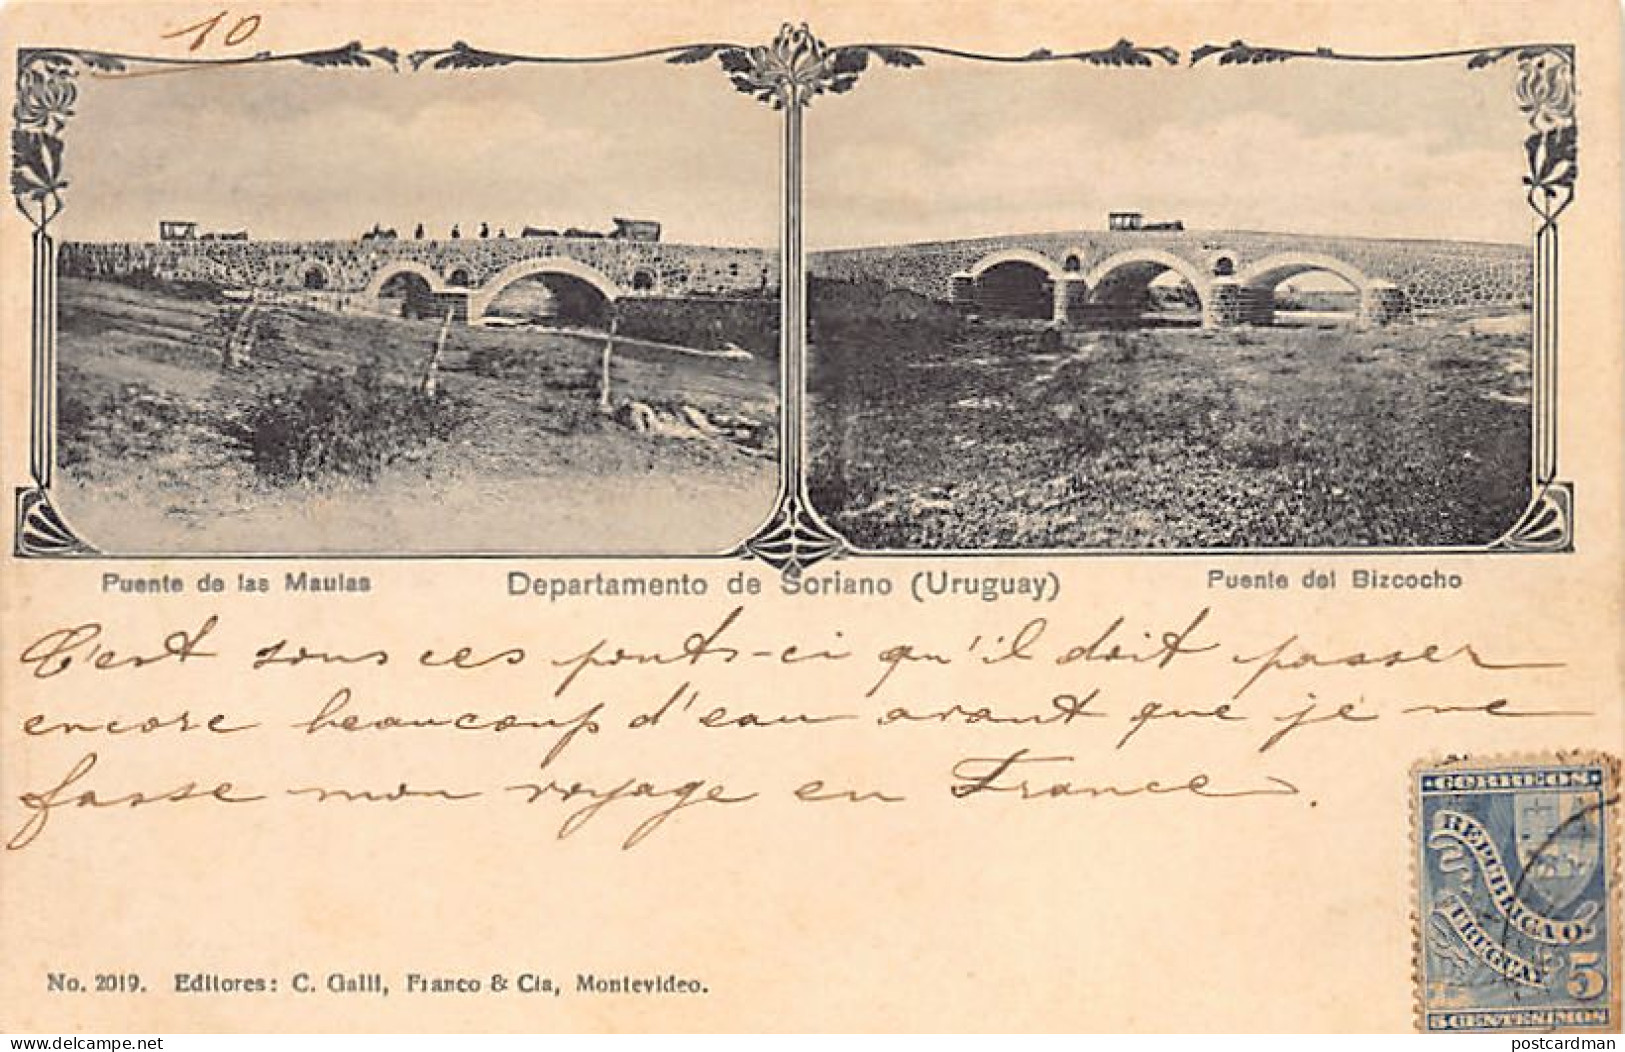 10
Puente de las Maulas
Departamento de Soriano (Uruguay)
Puente del Bizcocho
C'est sous ces ponts-ci qu'il doit passer
encore beaucoup d'eau avant que je ne
fasse mon voyage en France.
CORREOS
REPUBLICA O.
URUGUAY
5
5 CENTESIMOS
No. 2019. Editores: C. Galli, Franco & Cia, Montevideo.
delcampe.net
postcardman